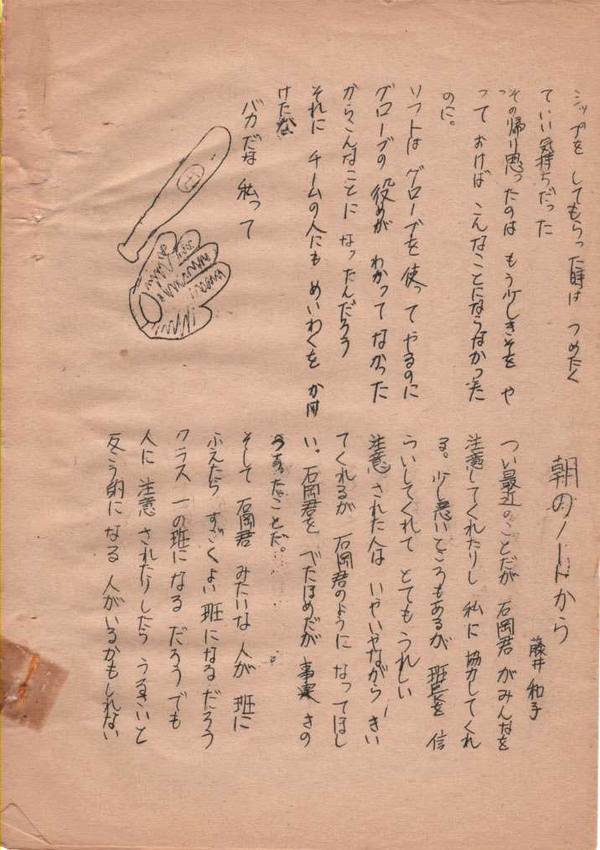 シップを してもらった時は つめたく
ていい気持ちだった
その帰り思ったのは もう少しきそを や
って おけば こんなことにならなかった
のに。
ソフトは グローブを 使って やるのに
グローブの 役めが わかって なかった
からこんなことに なったんだろう
それに チームの人にも めいわくを かけ
けたな
バカだな 私って
朝のノートから
藤井 和子
つい最近のことだが 石岡君 がみんなを
注意してくれたりし 私に 協力してくれ
る。少し悪いところもあるが 班長を 信
らいしてくれて とてもうれしい
注意 された人は いやいやながら きい
てくれるが 石岡君のように なってほし
い。石岡君を べたほめだが 事実 きの
うあったことだ。
そして 石岡君 みたいな 人が 班に
ふえたら すごくよい 班になるだろう
クラス 一の班になる だろう でも
人に 注意 されたりしたら うるさいと
反こう的になる 人がいるかもしれない